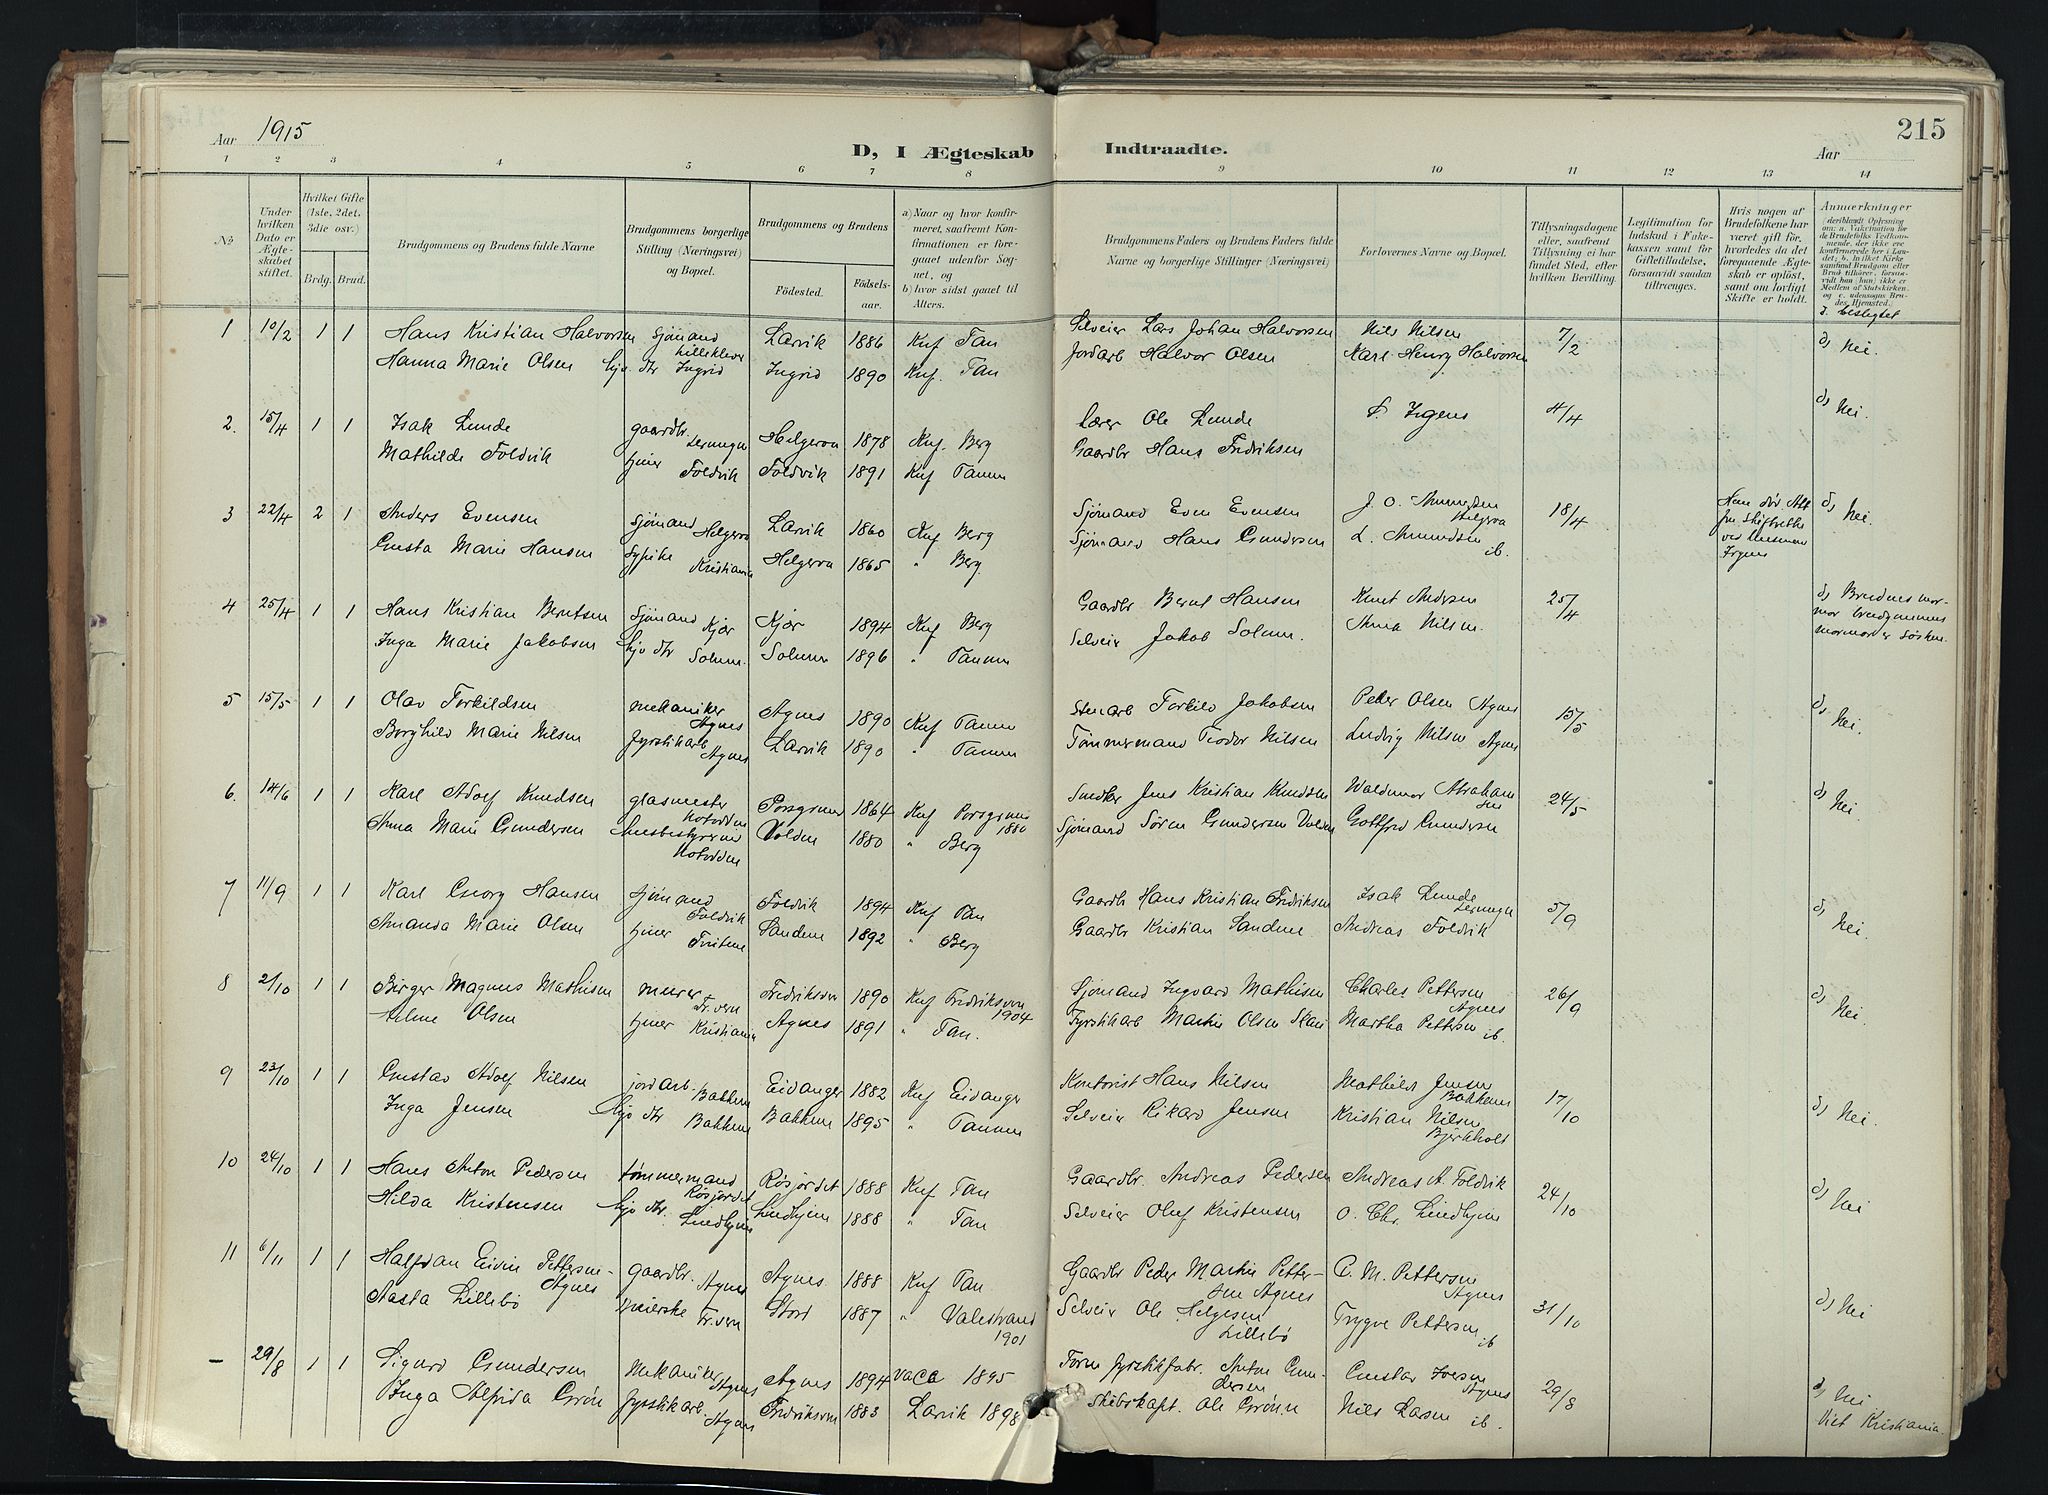 Aar 1915
D, I Ægteskab Indtraadte.
Aar
215
1 2 3 4 5 6 7 8 9 10 11 12 13 14
No
Under hvilken Dato er Ægteskabet stiftet.
Hvilket Gifte (1ste, 2det, 3die osv.)
Brdg. Brud.
Brudgommens og Brudens fulde Navne
Brudgommens borgerlige Stilling (Næringsvei) og Bopæl.
Brudgommens og Brudens
Fødested. Fødselsaar.
a) Naar og hvor konfirmeret, saafremt Konfirmationen er foregaaet udenfor Sognet, og
b) hvor sidst gaaet til Alters.
Brudgommens Faders og Brudens Faders fulde Navne og borgerlige Stillinger (Næringsvei)
Forlovernes Navne og Bopæl.
Tillysningsdagene eller, saafremt Tillysning ei har fundet Sted, efter hvilken Bevilling.
Legitimation for Indskud i Enkekassen samt for Giftetilladelse, forsaavidt saadan tiltrænges.
Hvis nogen af Brudefolkene har været gift før, hvorledes da det foregaaende Ægteskab er opløst, samt om lovligt Skifte er holdt.
Anmerkninger
d. beslegtet
1 10/2 1 1 Hans Kristian Halvorsen Sjømand Lillekleve Larvik 1886 Knf Tan Selveier Lars Johan Halvorsen Nils Nilsen 7/2 d, Nei.
Hanna Marie Olsen hjv. dtr Ingrid Ingrid 1890 Knf. Tan Jordarb Halvor Olsen Karl Henry Halvorsen
2. 15/4 1 1 Isak Lunde gaardbr. Helgeroa 1878 Knf. Berg Lærer Ole Lunde 4/4 d, Nei.
Mathilde Foldvik tjener Foldvik Foldvik 1891 Knf Tanum Gaardbr Hans Fredriksen
3 22/4 2 1 Anders Evensen Sjømand Helgeroa Larvik 1860 Knf Berg Sjømand Even Evensen J. O. Amundsen Helgeroa 18/4 d, Nei.
Gusta Marie Hansen Sypike Kristiania Helgeroa 1865 " Berg Sjømand Hans Gundersen L. Amundsen ib.
4 25/4 1 1 Hans Kristian Berntsen Sjømand Kjær Kjær 1894 Knf Berg Gaardbr Bernt Hansen Knut Andersen 25/4 d, Brudens mormor brudgommens mormor er søsken.
Inga Marie Jakobsen hjv dtr Solum. Solum 1896 " Tanum Selveier Jakob Solum. Anna Nilsen.
5 15/5 1 1 Olav Torkildsen mekaniker Agnes Agnes 1890 Knf Tanum Stenarb Torkild Jakobsen Peder Olsen Agnes 15/5 d, Nei.
Borghild Marie Nilsen fyrstikarb Agnes Larvik 1890 " Tanum Tømmermand Teodor Nilsen Ludvig Nilsen Agnes
6. 14/6 1 1 Karl Adolf Knudsen glasmester Notodden Porsgrund 1864 Knf Porsgrund 1880 Snedker Jens Kristian Knudsen Waldemar Abrahamsen 24/5 d, Nei.
Anna Marie Gundersen husbestyrerin Notodden Volden 1880 " Berg Sjømand Søren Gundersen Volden Gottfred Gundersen
7 11/9 1 1 Karl Georg Hansen sjømand Foldvik Foldvik 1894 Knf Tan Gaardb Hans Kristian Fredriksen Isak Lunde 5/9 d, Nei.
Amanda Marie Olsen tjener Tvitene Sandene 1892 " Berg Gaardbr Kristian Sandene Andreas Foldvik
8 2/10 1 1 Birger Magnus Mathisen murer Fr.vern Fredriksvern 1890 Knf Fredriksvern 1904 Sjømand Ingvard Mathisen Charles Pettersen Agnes 26/9 d, Nei.
Olsen tjener Kristiania Agnes 1891 " Tan. Fyrstikarb Martin Olsen Skau Martha Pettersen ib.
9 23/10 1 1 Gustav Adolf Nilsen jordarb. Bakken Eidanger 1882 Knf Eidanger Kontorist Hans Nilsen Mathilde Jensen Bakken 17/10 d, Nei.
Inga Jensen hjv dtr Bakken Bakken 1895 " Tanum Selveier Rikard Jensen Kristian Nilsen Bjerkholt
10 24/10 1 1 Hans Anton Pedersen tømmermand Røsjordet Røsjordet 1888 Knf Tan Gaardbr. Andreas Pedersen Andreas A. Foldvik 24/10 d, Nei
Hilda Kristensen hjv dtr. Lindhjem Lindhjem 1888 " Tan Selveier Oluf Kristensen O. Chr. Lindhjem
11 6/11 1 1 Halfdan Eivin Pettersen Agnes gaardbr. Agnes Agnes. 1888 Knf Tan Gaardbr Peder Martin Pettersen Agnes P. M. Pettersen Agnes 31/10 d, Nei
Aasta Lillebø meierske Fr.vern Stord 1887 " Valestrand 1901 Selveier Ole Helgesen Lillebø Trygve Pettersen ib
- 29/8 1 1 Sigurd Gundersen Mekaniker Agnes Agnes 1894 vacc 1895 Form fyrstikfabr. Anton Gundersen Gustav Iversen Agnes 29/8 d, Nei
Inga Alfrida Grøn fyrstikarb. Agnes Fredriksvern 1883 Larvik 1898 Skibskapt. Ole Grønn Nils Larsen ib. Viet Kristiania.